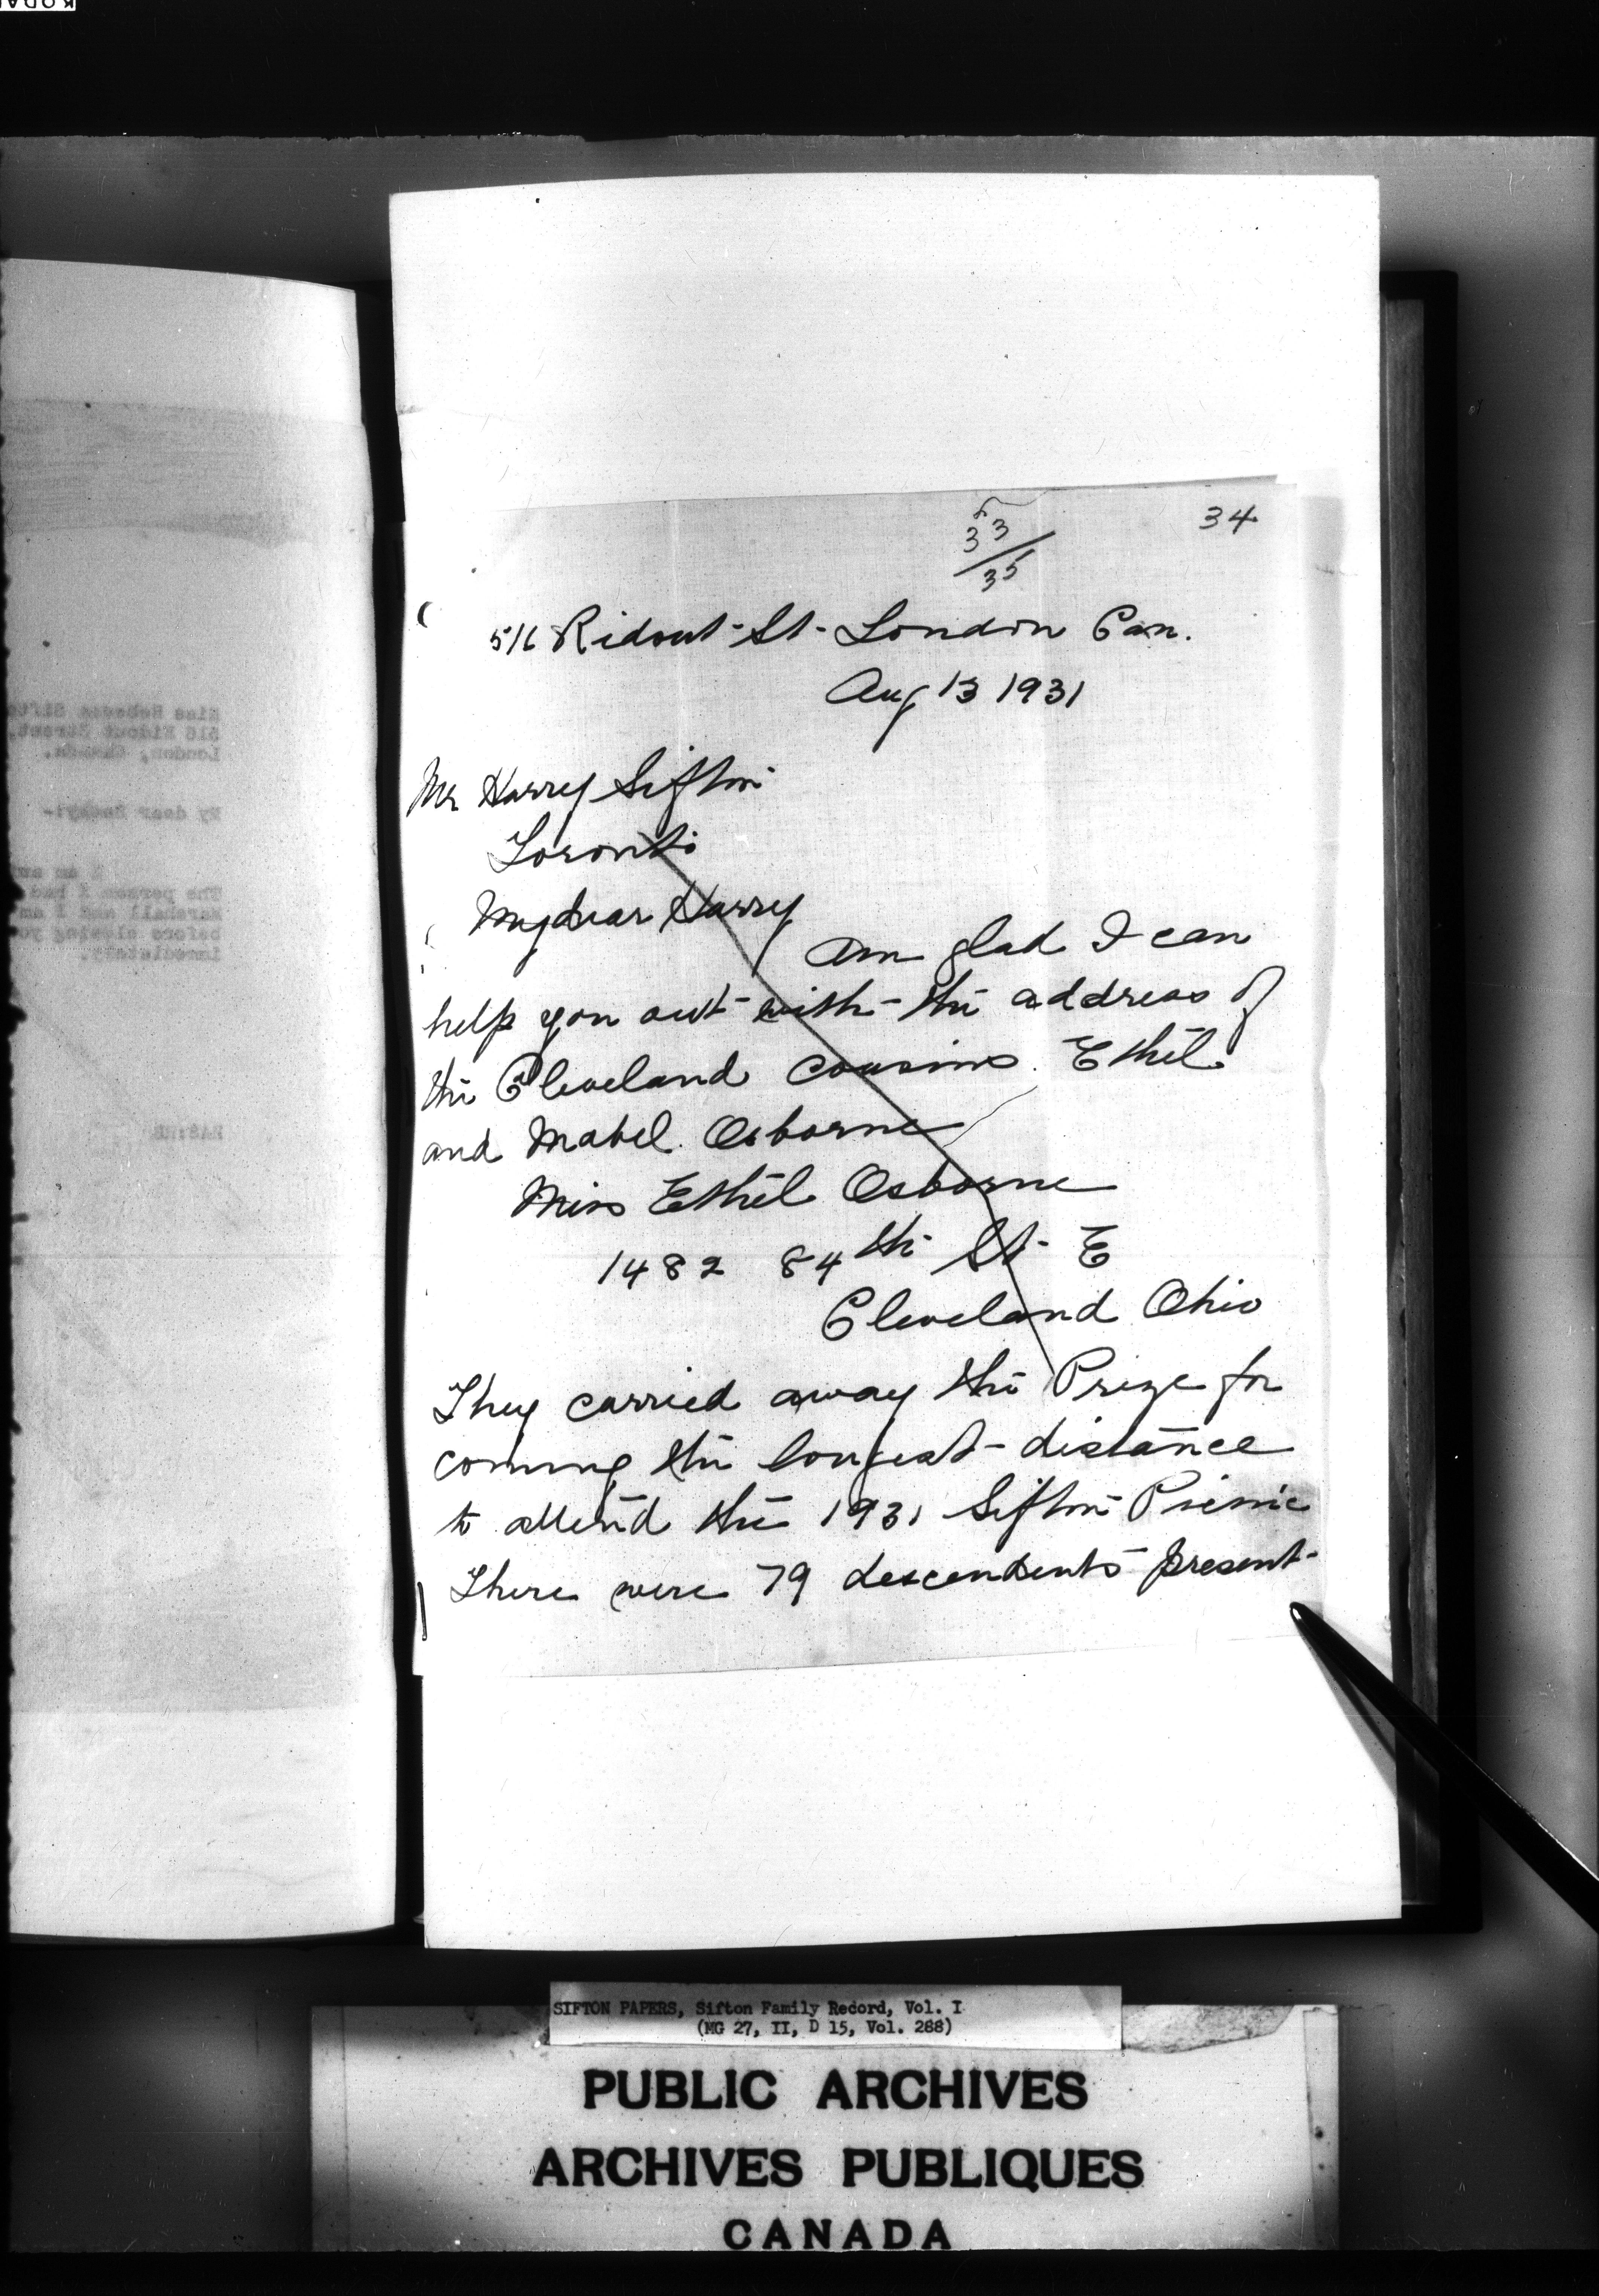 KODAK
34
33
35
516 Ridout St. London Can.
Aug 13 1931
Mr Harry Sifton
Toronto
My dear Harry
Am glad I can
help you out with the address of
the Cleveland cousins. Ethel
and Mabel Osborne
Miss Ethel Osborne
1482 84th St. E
Cleveland Ohio
They carried away the Prize for
coming the longest distance
to attend the 1931 Sifton Picnic
There were 79 descendents present
Miss Rebecca Sifto
516 Ridout Street,
London, Canada.
My dear
I am
The person I had
Marshall and I am
before closing yo
immediately.
SIFTON PAPERS, Sifton Family Record, Vol. I
(MG 27, II, D 15, Vol. 288)
PUBLIC ARCHIVES
ARCHIVES PUBLIQUES
CANADA